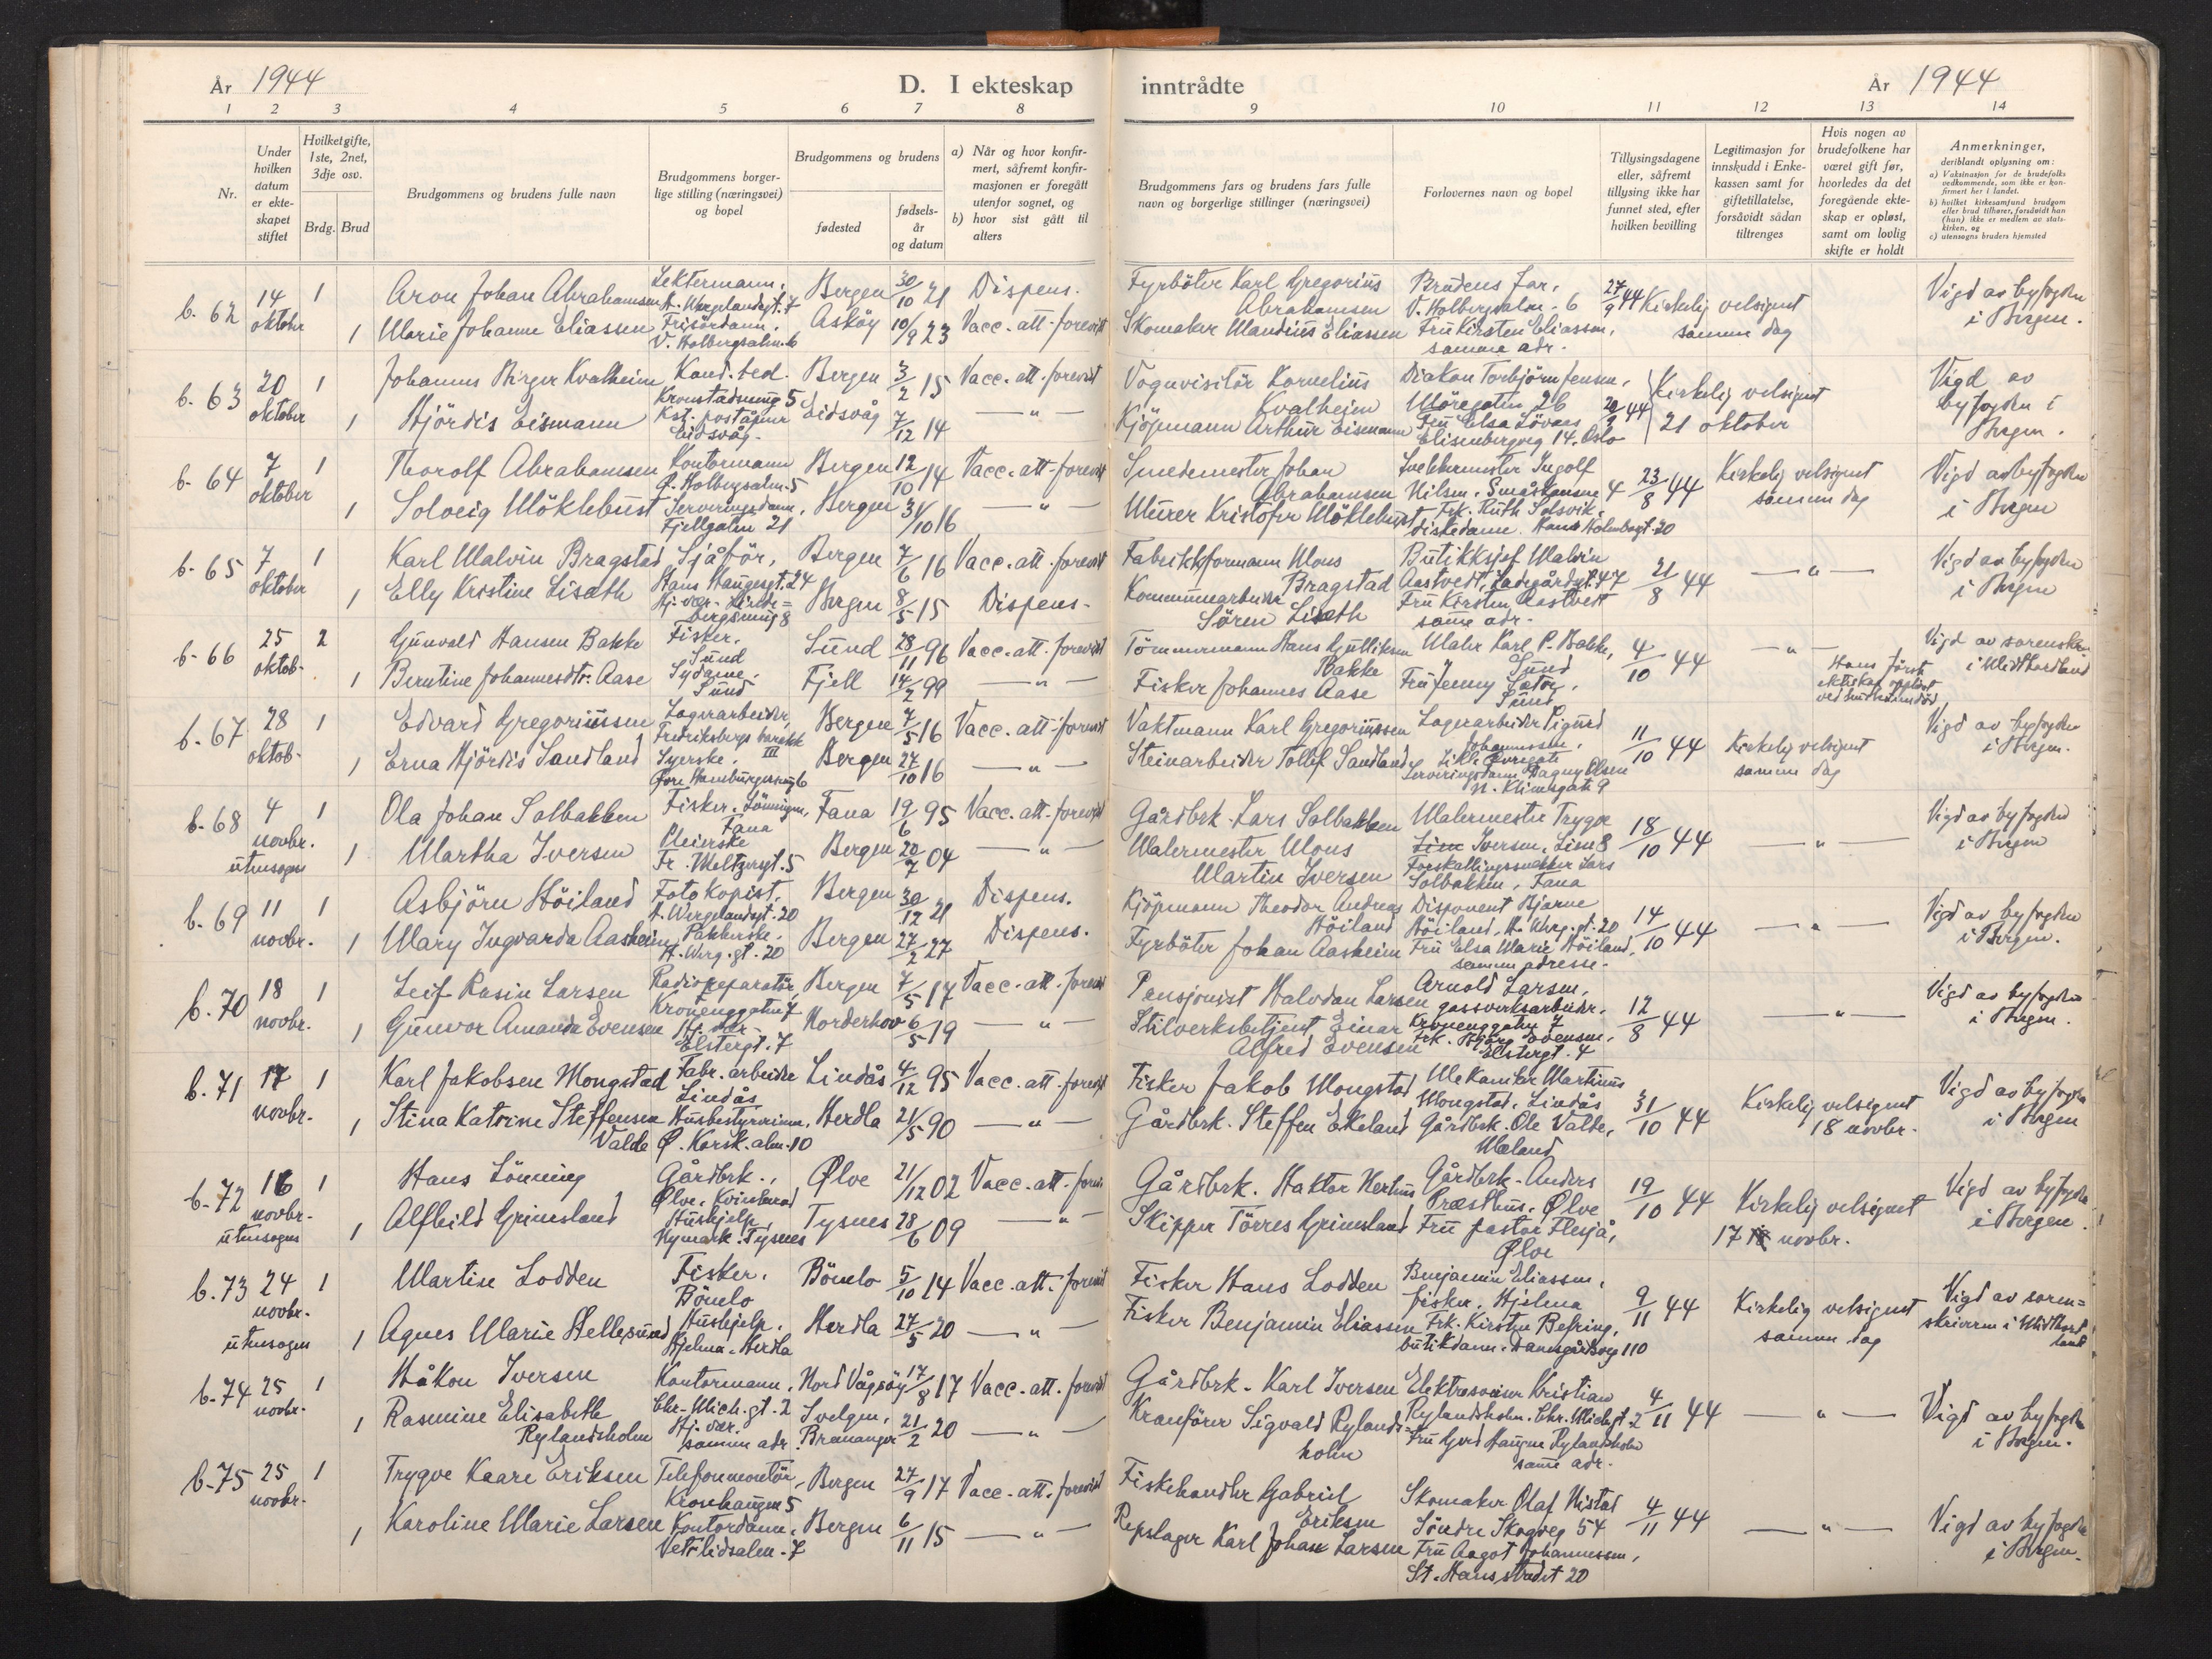 År 1944
D. I ekteskap
inntrådte
År 1944
1 2 3 4 5 6 7 8 9 10 11 12 13 14
Nr.
Under hvilken datum er ekteskapet stiftet
Hvilket gifte, 1ste, 2net, 3dje osv.
Brdg. Brud
Brudgommens og brudens fulle navn
Brudgommens borgerlige stilling (næringsvei) og bopel
Brudgommens og brudens
fødested
fødselsår og datum
a) Når og hvor konfirmert, såfremt konfirmasjonen er foregått utenfor sognet, og
b) hvor sist gått til alters
Brudgommens fars og brudens fars fulle navn og borgerlige stillinger (næringsvei)
Forlovernes navn og bopel
Tillysingsdagene eller, såfremt tillysing ikke har funnet sted, efter hvilken bevilling
Legitimasjon for innskudd i Enkekassen samt for giftetillatelse, forsåvidt sådan tiltrenges
Hvis nogen av brudefolkene har været gift før, hvorledes da det foregående ekteskap er opløst, samt om lovlig skifte er holdt
Anmerkninger,
deriblandt oplysning om:
a) Vaksinasjon for de brudefolks vedkommende, som ikke er konfirmert her i landet.
b) hvilket kirkesamfund brudgom eller brud tilhører, forsåvidt han (hun) ikke er medlem av statskirken, og
c) utensogns bruders hjemsted
b. 62 14 oktober 1 Aron Johan Abrahamsen Lektermann, H. Wergelandsgt. 7 Bergen 30/10 21 Dispens. Fyrböter Karl Gregorius Abrahamsen Brudens far, V. Holbergsalm. 6 27/9 44 Kirkelig velsignet samme dag Vigd av byfogden i Bergen.
1 Marie Johanne Eliassen Frisördame, V. Holbergsalm. 6 Asköy 10/9 23 Vacc. att. forevist Skomaker Mandius Eliassen Fru Kirsten Eliassen, samme adr.
b. 63 20 oktober 1 Johannes Birger Kvalheim Kand. teol. Kronstadveieng 5 Bergen 3/2 15 Vacc. att. forevist Vognvisitör Kornelius Kvalheim Diakon Torbjörn Jensen, Möregaten 26 44 Kirkelig velsignet 21 oktober Vigd av byfogden i Bergen.
1 Hjördis Eismann Kst. poståpner Eidsvåg. Eidsvåg 7/12 14 — " — Kjöpmann Arthur Eismann Fru Elsa Lövaas Elisenbergveg 14. Oslo
b. 64 7 oktober 1 Thorolf Abrahamsen Kontormann Ö. Holbergsalm. 5 Bergen 12/10 14 Vacc. att. forevist Smedemester Johan Abrahamsen Ingolf Nilsen. Småskansene 4 23/8 44 Kirkelig velsignet samme dag Vigd av byfogden i Bergen
1 Solveig Möklebust Serveringsdame, Fjellgaten 21 Bergen 31/10 16 — " — Murer Kristofer Möklebust Frk. Ruth Solsvik, diskedame. Hans Holmboegt. 20
b. 65 7 oktober 1 Karl Malvin Bragstad Sjåför, Hans Haugesgt. 24 Bergen 7/6 16 Vacc. att. forevist Fabrikkformann Mons Bragstad Butikksjef Malvin Aastvedt, Ladegårdsgt. 47 21/8 44 — " — Vigd av byfogden i Bergen
1 Elly Kristine Liseth Hj. vær. Bergen 8/5 15 Dispens. Kommunearbeider Sören Liseth Fru Kirsten Aastvedt samme adr.
b. 66 25 oktob. 2 Gunvald Hansen Bakke Fisker. Sund Sund 28/11 96 Vacc. att. forevist Tömmermann Hans Gulliksen Bakke Maler Karl P. Bakke, Sund 4/10 44 — " — Hans förste ekteskap opplöst ved hustruens död Vigd av sorenskr. i Midthordland
1 Berntine Johannesdtr. Aase Sydame. Sund Fjell 14/2 99 — " — Fisker Johannes Aase Fru Jenny Sæter, Sund
b. 67 28 oktob. 1 Edvard Gregoriussen Lagerarbeider, Fredriksbergs barakk III Bergen 7/5 16 Vacc. att. forevist Vaktmann Karl Gregoriussen Lagerarbeider Sigurd Johannessen, 11/10 44 Kirkelig velsignet samme dag Vigd av byfogden i Bergen.
1 Erna Hjördis Sandland Syerske. Övre Hamburgersmug 6 Bergen 27/10 16 — " — Steinarbeider Tollef Sandland Serveringsdame Dagny Olsen N. Klimesgate 9
b. 68 4 novbr. utensogns 1 Ola Johan Solbakken Fisker. Lönningen, Fana Fana 19/6 95 Vacc. att. forevist Gårdbrk. Lars Solbakken Malermester Trygve Iversen, Lien 8 18/10 44 — " — Vigd av byfogden i Bergen
1 Martha Iversen Pleierske Fr. Meltzersgt. 5 Bergen 20/7 04 — " — Malermester Mons Martin Iversen Forskallingssnekker Lars Solbakken, Fana
b. 69 11 novbr. 1 Asbjörn Höiland Fotokopist, H. Wergelandsgt. 20 Bergen 30/12 21 Dispens. Kjöpmann Theodor Andreas Höiland Disponent Bjarne Höiland, H. Werg. gt. 20 14/10 44 — " — Vigd av byfogden i Bergen.
1 Mary Ingvarda Aasheim Pakkerske. H. Werg. gt. 20 Bergen 27/2 27 Dispens. Fyrböter Johan Aasheim Fru Elsa Marie Höiland, samme adresse.
b. 70 18 novbr. 1 Leif Rasin Larsen Radioreparatör, Kronenggaten 7 Bergen 7/5 17 Vacc. att. forevist Pensjonist Halvdan Larsen Arnold Larsen, gassverksarbeider. Kronenggaten 7 12/8 44 — " — Vigd av byfogden i Bergen.
1 Gunvor Amanda Evensen Hj. vær. Elstergt. 7 Norderhov 6/5 19 — " — Stilverksbetjent Einar Alfred Evensen Frk. Evensen, Elstergt. 4
b. 71 17 novbr. 1 Karl Jakobsen Mongstad Fabr. arbeider Lindås Lindås 4/12 95 Vacc. att. forevist Fisker Jakob Mongstad Mekaniker Martinus Mongstad, Lindås 31/10 44 Kirkelig velsignet 18 novbr. Vigd av byfogden i Bergen
1 Stina Katrine Steffensen Valde Husbestyrerinne, Ø. Korsk. alm. 10 Herdla 21/5 90 — " — Gårdbrk. Steffen Ekeland Gårdbrk. Ole Valde, Mæland
b. 72 16 novbr. utensogns 1 Hans Lönning Gårdbrk., Ølve, Kvinherad Ølve 21/12 02 Vacc. att. forevist Gårdbrk. Haktor Herhus Gårdbrk. Anders Præsthus, Ølve 19/10 44 Kirkelig velsignet 17 novbr. Vigd av byfogden i Bergen.
1 Alfhild Grimsland Hushjelp, Nymark. Tysnes Tysnes 28/6 09 — " — Skipper Törres Grimsland Fru pastor Flesjå, Ølve
b. 73 24 novbr. utensogns 1 Martin Lodden Fisker. Bömlo Bömlo 5/10 14 Vacc. att. forevist Fisker Hans Lodden Benjamin Eliassen, fisker, Hjelma 9/11 44 Kirkelig velsignet samme dag Vigd av sorenskriveren i Midthordland
1 Agnes Marie Hellesund Hushjelp. Hjelma. Herdla Herdla 27/5 20 — " — Fisker Benjamin Eliassen Frk. Kirsten Befring, butikdame. Damsgårdsveg 110
b. 74 25 novbr. 1 Håkon Iversen Kontormann, Chr. Mich. gt. 2 Nord Vågsöy 17/8 17 Vacc. att. forevist Gårdbrk. Karl Iversen Elektrosveiser Kristian Rylandsholm. Chr. Michgt. 2 4/11 44 — " — Vigd av byfogden i Bergen.
1 Rasmine Elisabeth Rylandsholm Hj. vær. samme adr. Svelgen, Bremanger 21/2 20 — " — Kranförer Sigvald Rylandsholm Fru Gerd Haugen Rylandsholm samme adr.
b. 75 25 novbr. 1 Trygve Kaare Eriksen Telefonmontör, Kronhaugen 5 Bergen 27/9 17 Vacc. att. forevist Fiskehandler Gabriel Eriksen Skomaker Olaf Nistad Söndre Skogveg 54 4/11 44 — " — Vigd av byfogden i Bergen.
1 Karoline Marie Larsen Kontordame, Vetrlidsalm. 7 Bergen 6/11 15 — " — Repslager Karl Johan Larsen Fru Aagot Johannessen, St. Hansstredet 20